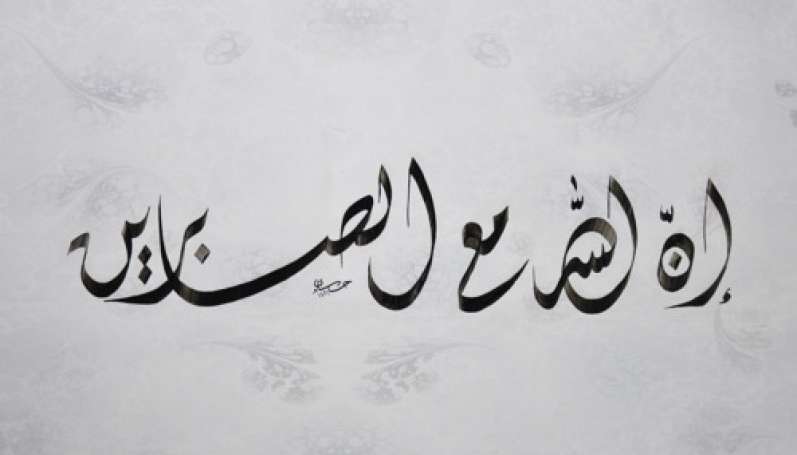 إنّ اللّه مع الصابرين